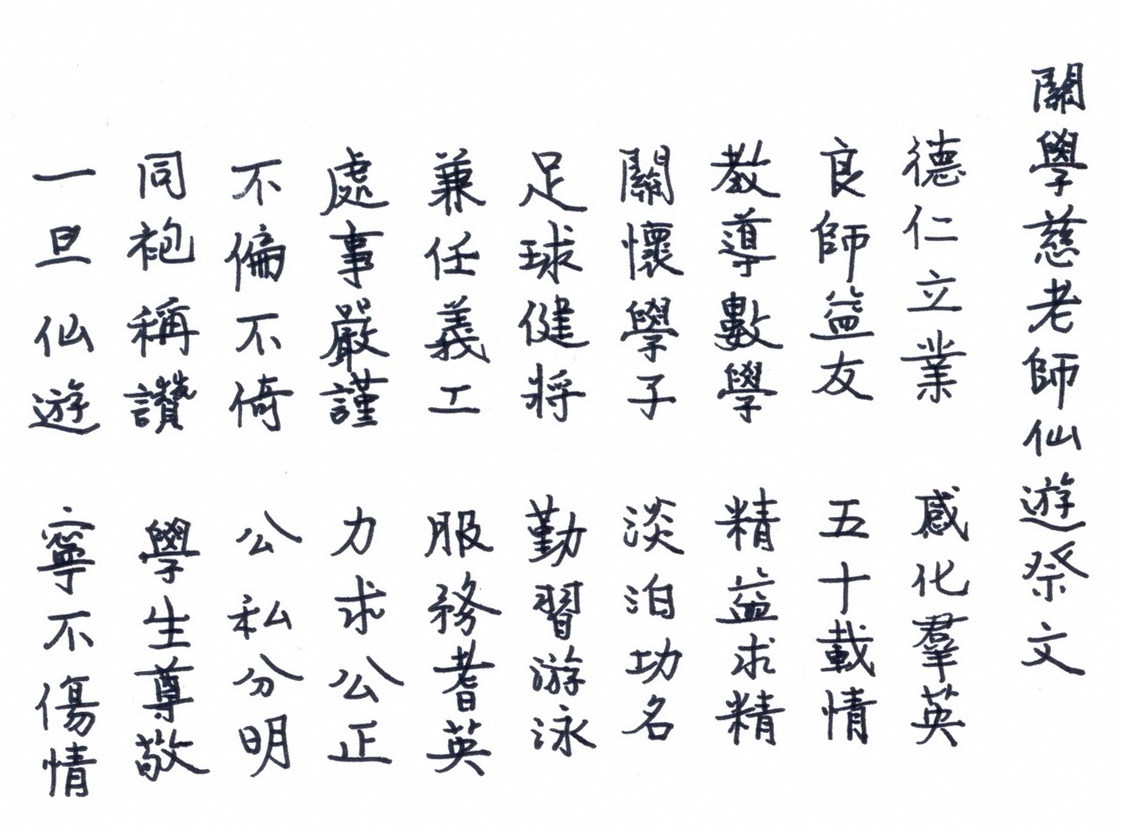 關學慈老師仙遊祭文
德仁立業 感化羣英
良師益友 五十載情
教導數學 精益求精
關懷學子 淡泊功名
足球健將 勤習游泳
兼任義工 服務耆英
處事嚴謹 力求公正
不偏不倚 公私分明
同袍稱讚 學生尊敬
一旦仙遊 寧不傷情